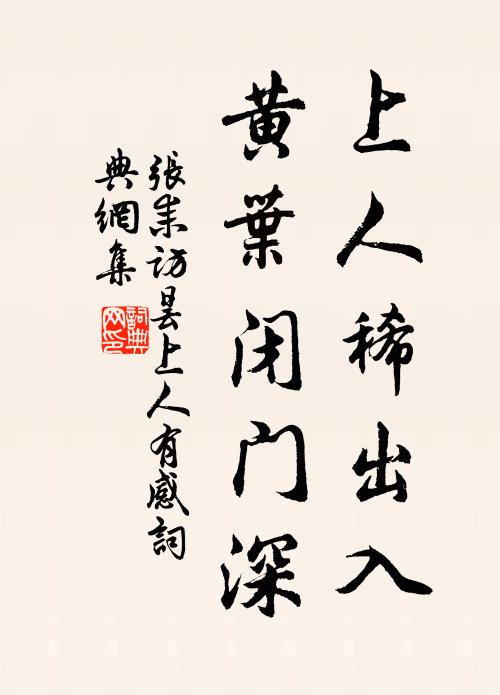 上人稀出入
黄葉闭门深
張耒访昙上人有感詞
典網集
詞典
网印